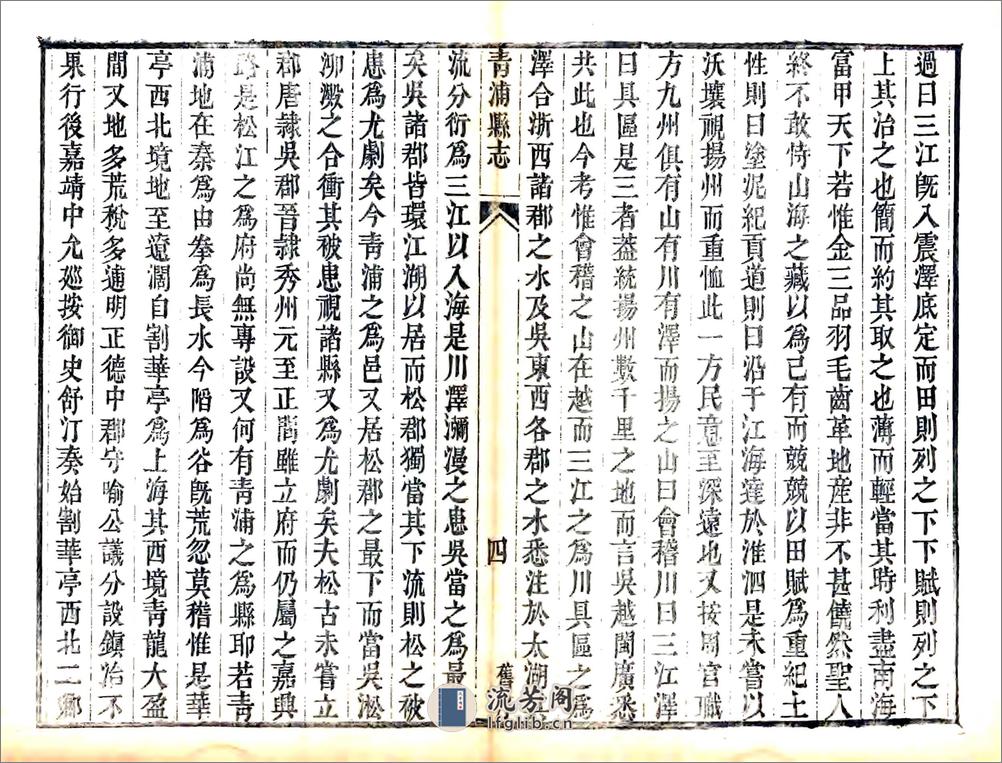 過曰三江旣入震澤底定而田則列之下下賦則列之下
上其治之也簡而約其取之也薄而輕當其時利盡南海
富甲天下若惟金三品羽毛齒革地産非不甚饒然聖人
終不敢恃山海之藏以為己有而兢兢以田賦為重紀土
性則曰塗泥紀貢道則曰沿于江海達於淮泗是未嘗以
沃壤視揚州而重恤此一方民意至深遠也又按周官職
方九州俱有山有川有澤而揚之山曰會稽川曰三江澤
曰具區是三者葢統揚州數千里之地而言吳越閩廣悉
共此也今考惟會稽之山在越而三江之為川具區之為
澤合浙西諸郡之水及吳東西各郡之水悉注於太湖
青浦縣志
四
舊
流分衍為三江以入海是川澤瀰漫之患吳當之為最
矣吳諸郡皆環江湖以居而松郡獨當其下流則松之被
患為尤劇矣今青浦之為邑又居松郡之最下而當吳淞
泖澱之合衝其被患視諸縣又為尤劇矣夫松古未嘗立
郡唐隸吳郡晉隸秀州元至正間雖立府而仍屬之嘉興
路是松江之為府尚無專設又何有青浦之為縣耶若青
浦地在秦為由拳為長水今陷為谷旣荒忽莫稽惟是華
亭西北境地至遼濶自割華亭為上海其西境青龍大盈
間又地多荒稅多逋明正德中郡守喻公議分設鎮治不
果行後嘉靖中允廵按御史舒汀奏始割華亭西北二鄉
流芳阁
lfglib.cn